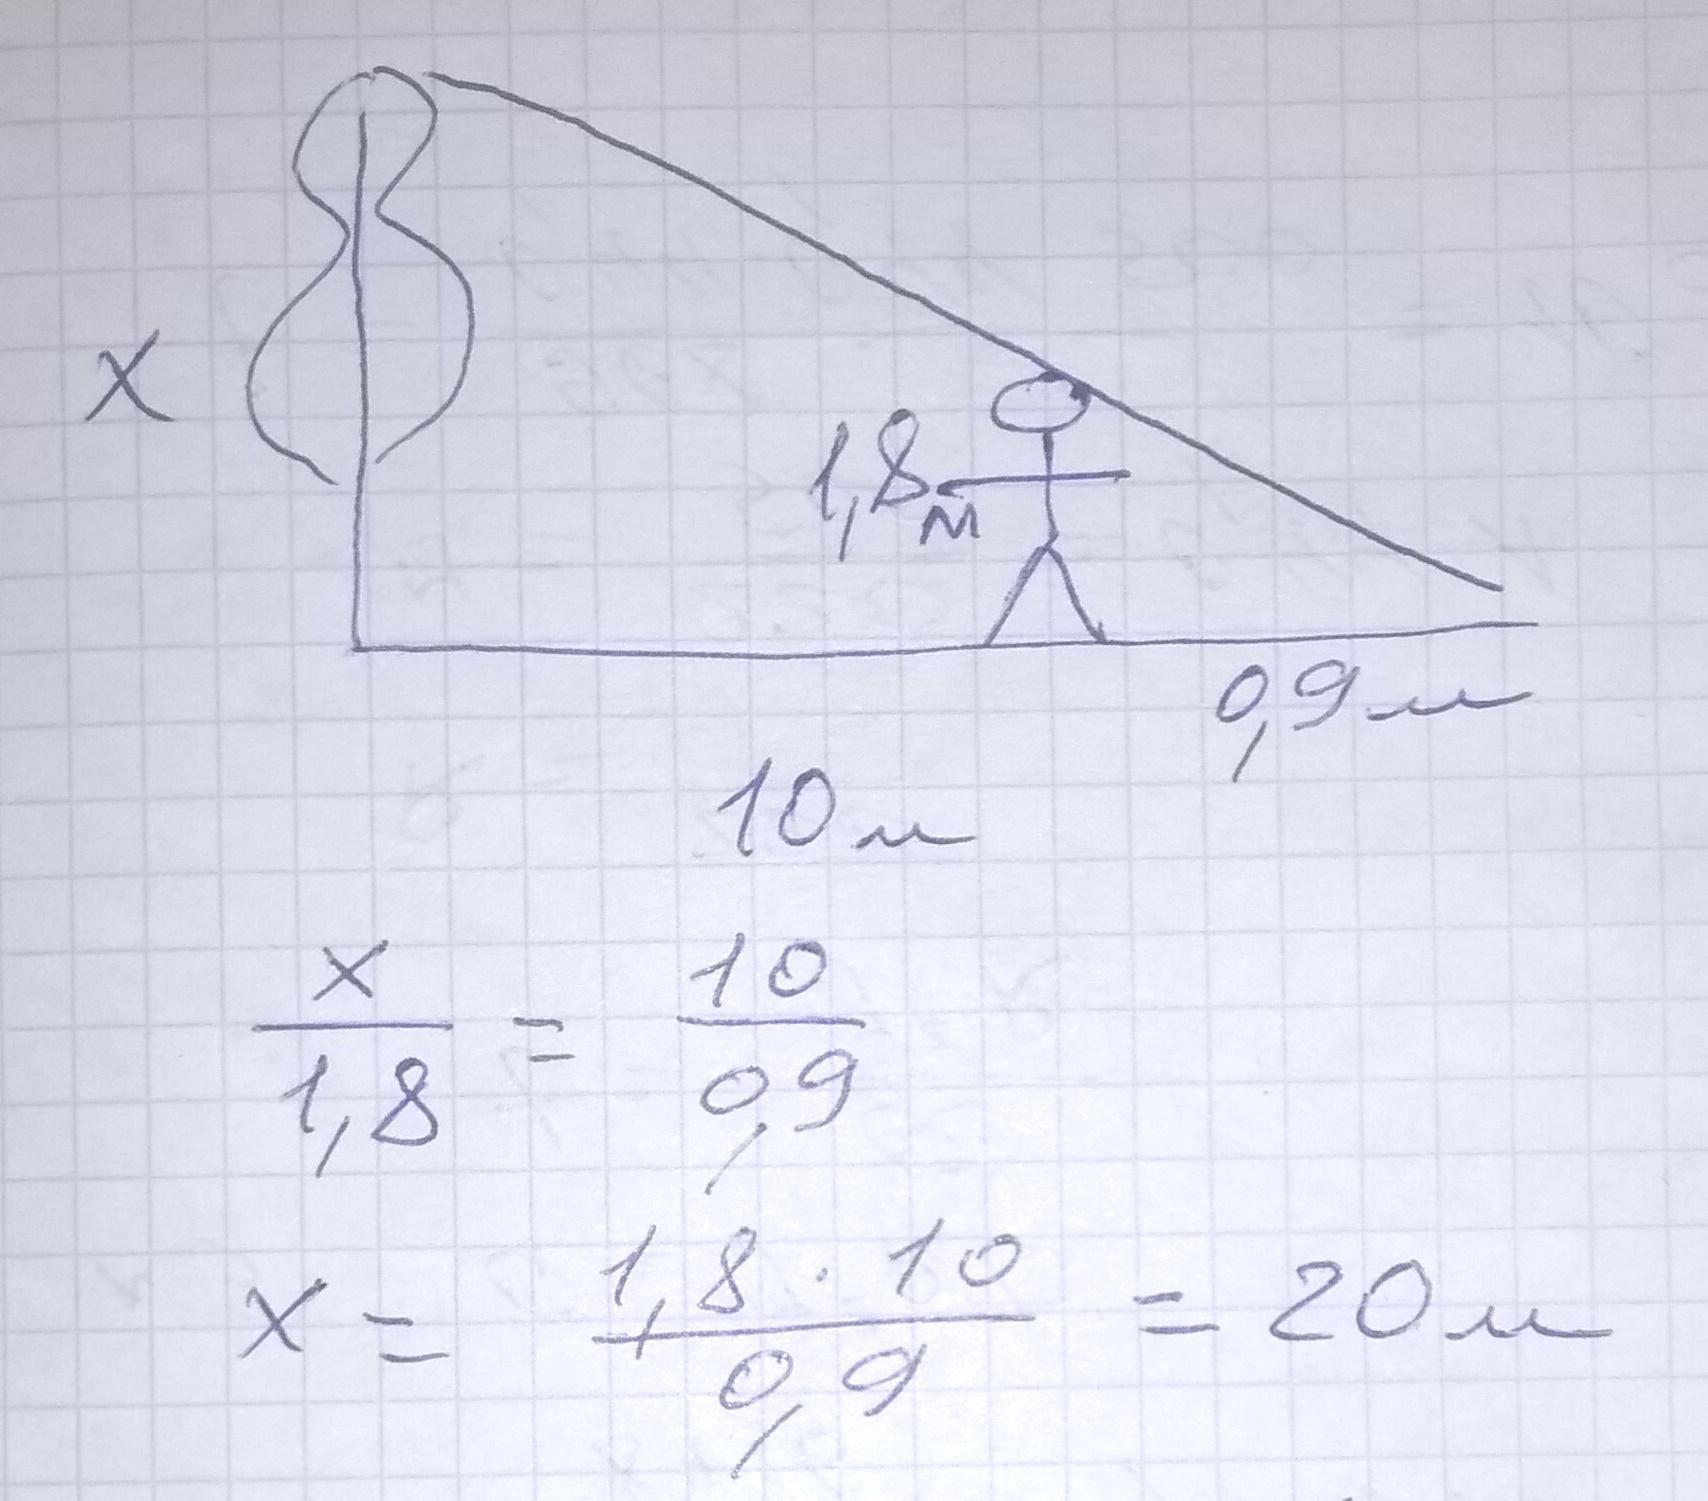 x
1,8 м
0,9 м
10 м
x/1,8 = 10/0,9
x = 1,8 · 10/0,9 = 20 м